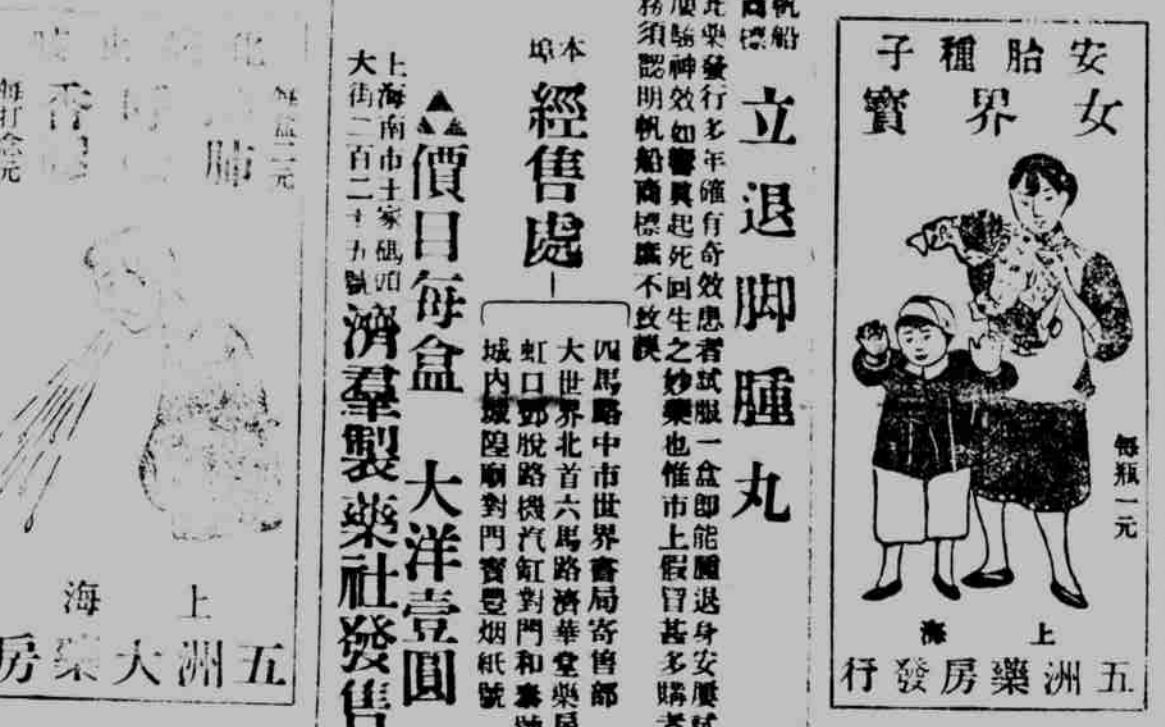 安胎種子
女界寶
每瓶一元
上海
五洲藥房發行
帆船
商標
立退脚腫丸
此藥發行多年確有奇效患者試服一盒即能腫退身安屢試
屢驗神效如響真起死回生之妙藥也惟市上假冒甚多購者
務須認明帆船商標庶不致誤
本埠
經售處
四馬路中市世界書局寄售部
大世界北首六馬路濟華堂藥房
虹口鄧脫路機汽缸對門和泰號
城內城隍廟對門寶豐烟紙號
價目每盒 大洋壹圓
上海南市王家碼頭
大街二百二十五號
濟羣製藥社發售
每盒二元
肺
香
每打念元
上海
五洲大藥房